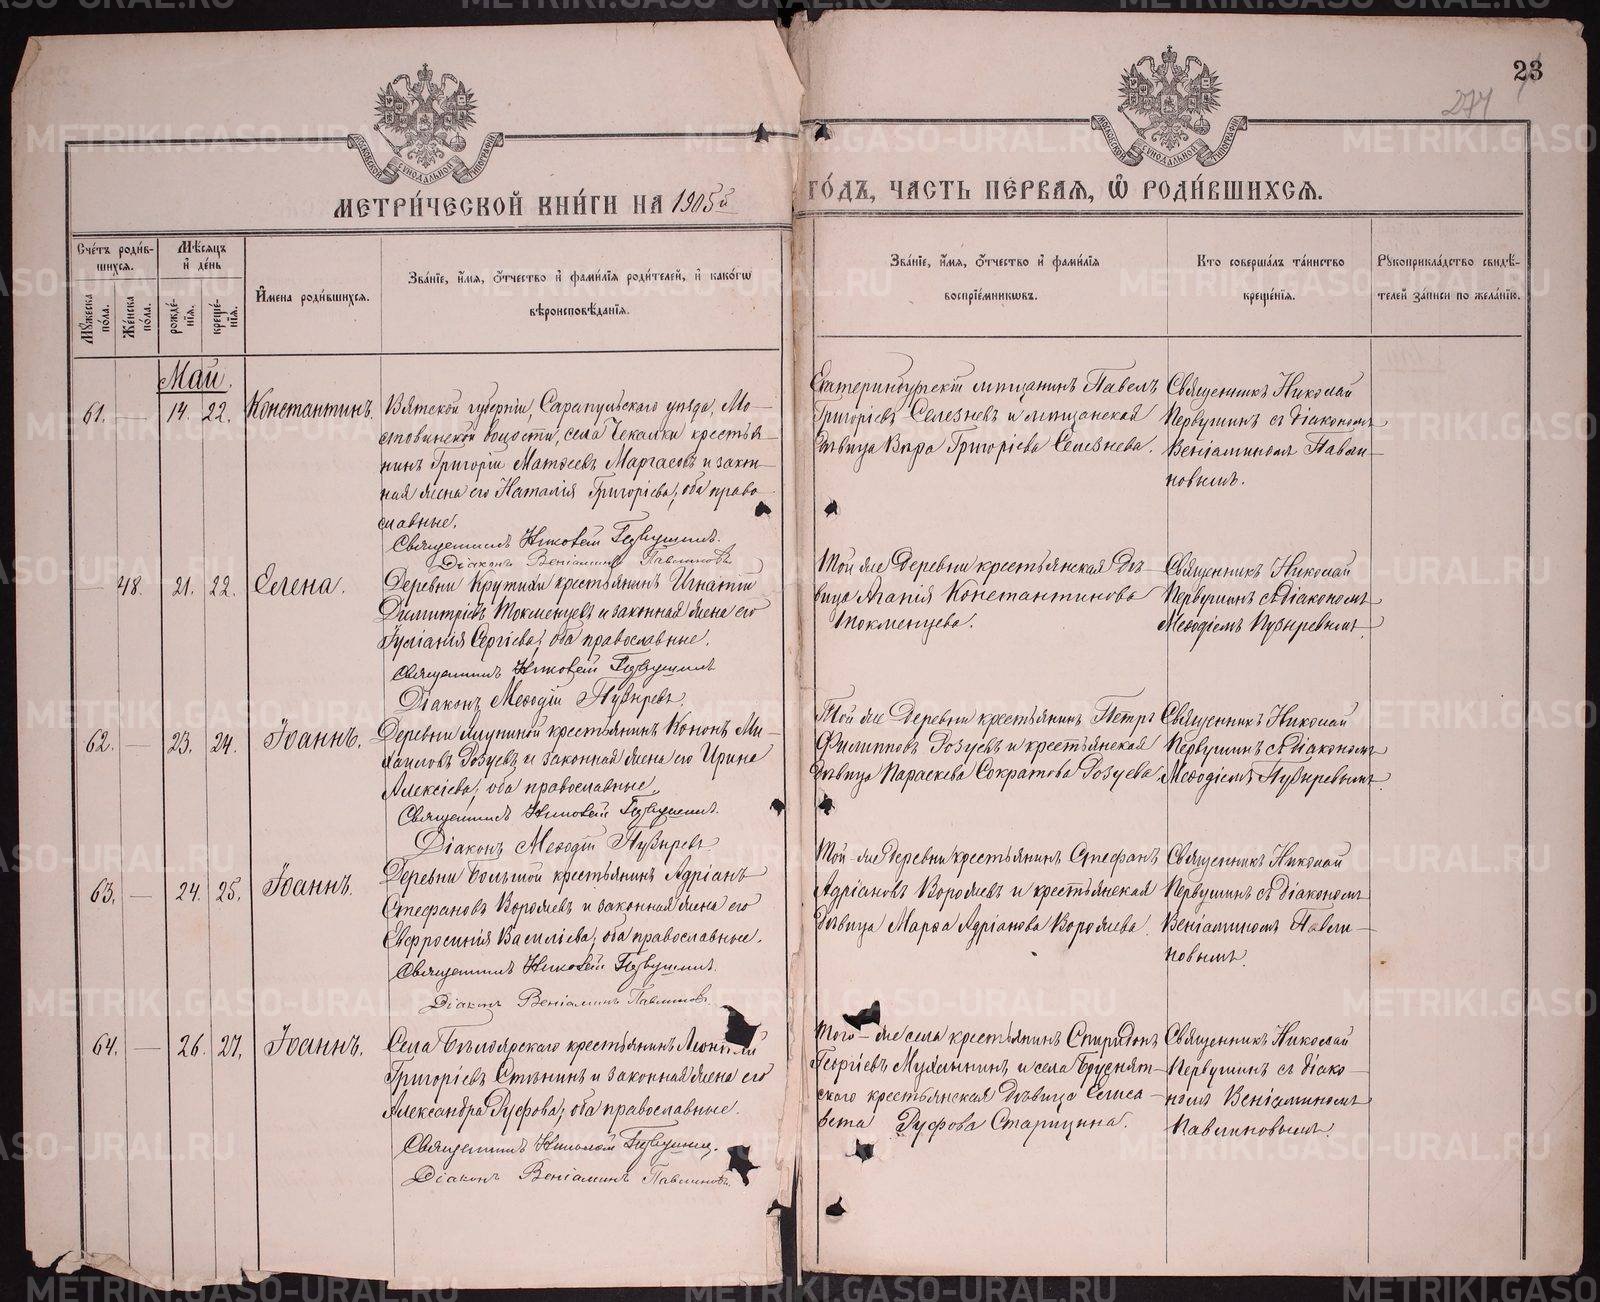 23
274
МЕТРИ́ЧЕСКОЙ КНИ́ГИ НА 1905й ГО́ДЪ, ЧАСТЬ ПЕ́РВАЯ, Ѡ РОДИ́ВШИХСЯ.
Сче́тъ роди́в-
шихся.
Мꙋ́жеска
по́ла.
Же́нска
по́ла.
Мѣ́сяцъ
и҆ де́нь
рожде́-
нїя.
креще́-
нїя.
И҆мена роди́вшихся.
Зва́нїе, и҆́мя, ѻ҆́тчество и҆ фами́лїя роди́телей, и҆ како́гѡ
вѣроисповѣ́данїя.
Зва́нїе, и҆́мя, ѻ҆́тчество и҆ фами́лїя
воспрїе́мникѡвъ.
Кто соверша́лъ та́инство
креще́нїя.
Рꙋкоприкла́дство свидѣ́-
телей за́писи по жела́нїю.
Май.
61. — 14. 22. Константинъ.
Вятской губерніи, Сарапульскаго уѣзда, Мо-
стовинской волости, села Чекалки крестья-
нинъ Григорій Матѳеевъ Маргасовъ и закон-
ная жена его Наталія Григорiева, оба право-
славные.
Священникъ Николай Первушинъ.
Діаконъ Веніаминъ Павлиновъ
Екатеринбургскій мѣщанинъ Павелъ
Григоріевъ Селезневъ и мѣщанская
дѣвица Вѣра Григоріева Селезнева.
Священникъ Николай
Первушинъ съ діакономъ
Веніаминомъ Павли-
новымъ.
— 48. 21. 22. Елена.
Деревни Крутихи крестьянинъ Игнатій
Димитріевъ Токменцевъ и законная жена его
Іуліанія Сергіева, оба православные.
Священникъ Николай Первушинъ
Діаконъ Меѳодій Пузыревъ.
Той же деревни крестьянская дѣ-
вица Агапія Константинова
Токменцева.
Священникъ Николай
Первушинъ съ діакономъ
Меѳодіемъ Пузыревымъ.
62. — 23. 24. Іоаннъ.
Деревни крестьянинъ Кононъ Ми-
хаиловъ Розуевъ и законная жена его Ирина
Алексіева, оба православные.
Священникъ Николай Первушинъ.
Діаконъ Меѳодій Пузыревъ.
Той же деревни крестьянинъ Петръ
Филипповъ Розуевъ и крестьянская
дѣвица Параскева Сократова Розуева.
Священникъ Николай
Первушинъ съ діакономъ
Меѳодіемъ Пузыревымъ.
63. — 24. 25. Іоаннъ.
Деревни Большой крестьянинъ Адріанъ
Стефановъ Ворожевъ и законная жена его
Евфросинія Василіева, оба православные.
Священникъ Николай Первушинъ.
Діаконъ Веніаминъ Павлиновъ.
Той-же деревни крестьянинъ Стефанъ
Адріановъ Ворожевъ и крестьянская
дѣвица Марѳа Адріанова Ворожева.
Священникъ Николай
Первушинъ съ діакономъ
Веніаминомъ Павли-
новымъ.
64. — 26. 27. Іоаннъ.
Села Бѣлоярскаго крестьянинъ
Григоріевъ Стѣнинъ и законная жена его
Александра Руфова, оба православные.
Священникъ Николай Первушинъ.
Діаконъ Веніаминъ Павлиновъ.
Того-же села крестьянинъ Спиридонъ
Георгіевъ и села Бруснят-
скаго крестьянская дѣвица Елиса-
вета Руфова Старицина.
Священникъ Николай
Первушинъ съ діако-
номъ Веніаминомъ
Павлиновымъ.
METRIKI.GASO-URAL.RU